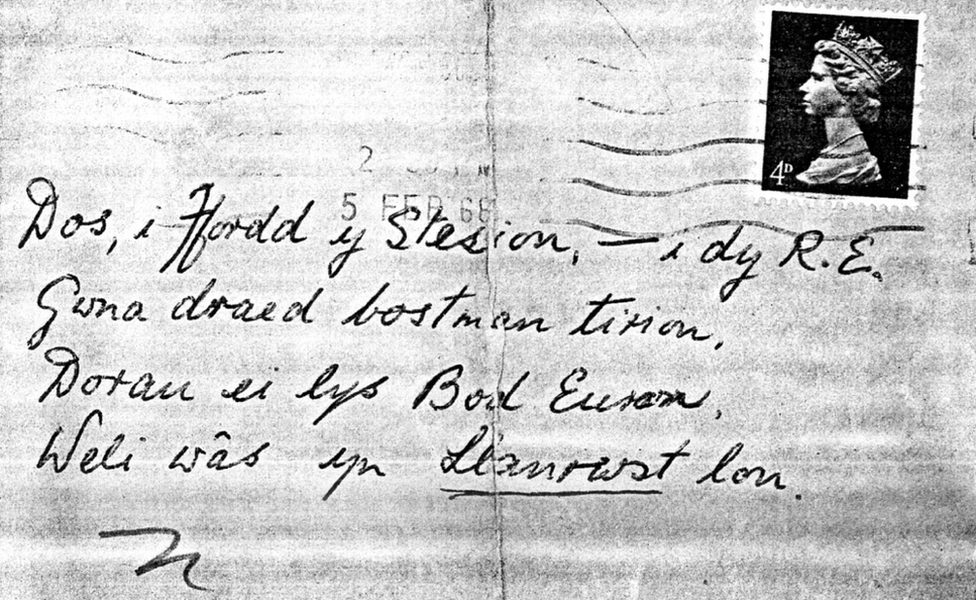 4D
5 FEB 68
Dos, i Ffordd y Stesion, — i dy R.E.
Gwna draed bostman tirion,
Doran ei lys Bod Euron,
Weli wâs yn Llanrwst lon.